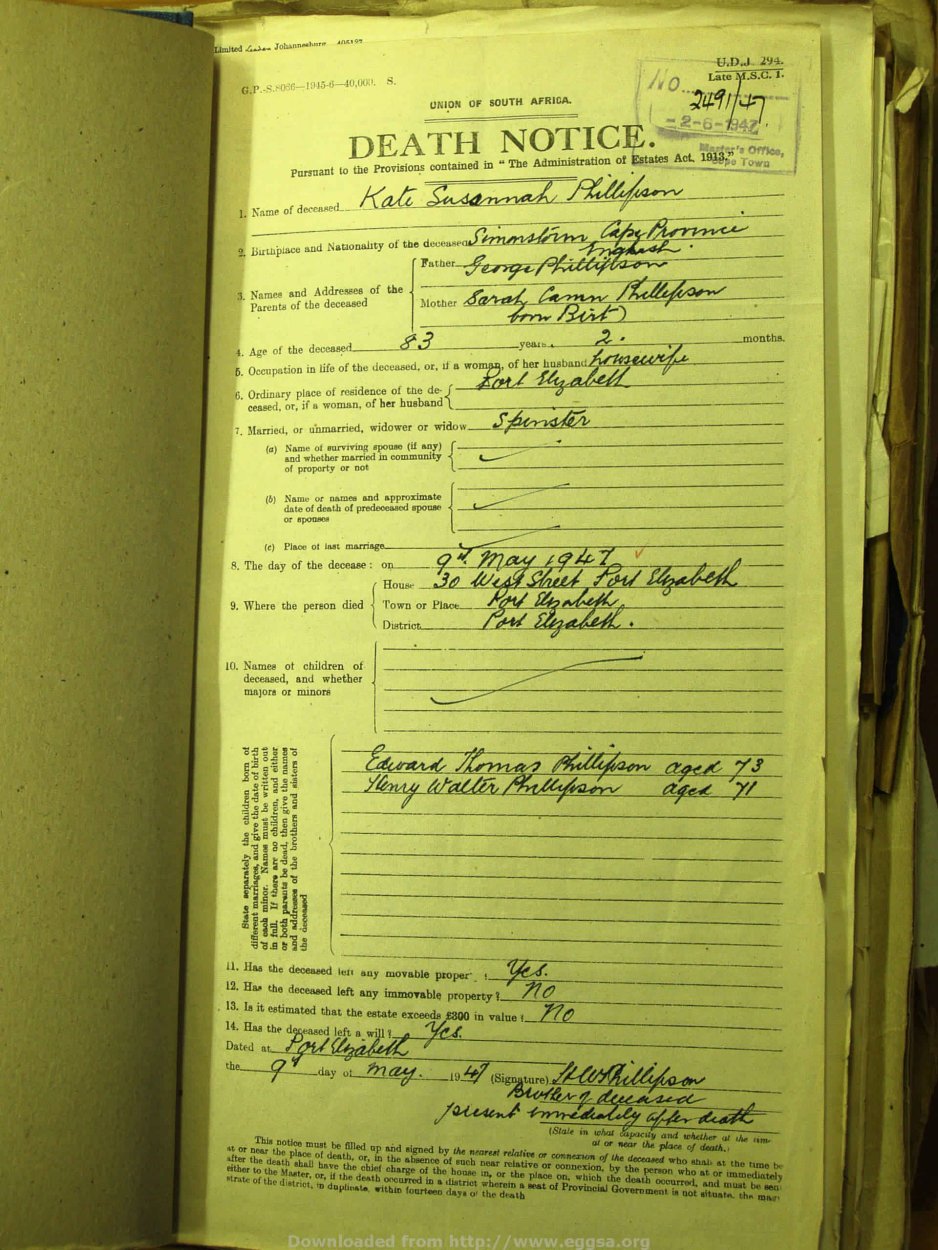 Limited Johannesburg 405197
G.P.-S.8066—1945-6—40,000. S.
U.D.J. 294.
Late M.S.C. 1.
No. 2491/47
-2-6-1947
Master's Office,
Cape Town
UNION OF SOUTH AFRICA.
DEATH NOTICE.
Pursuant to the Provisions contained in " The Administration of Estates Act, 1913."
1. Name of deceased Kate Susannah Phillipson
2. Birthplace and Nationality of the deceased Simonstown Cape Province
English.
3. Names and Addresses of the Parents of the deceased
Father George Phillipson
Mother Sarah Phillipson
born Birt)
4. Age of the deceased 83 years 2. months.
5. Occupation in life of the deceased, or, if a woman, of her husband housewife
6. Ordinary place of residence of the de-
ceased, or, if a woman, of her husband Port Elizabeth
7. Married, or unmarried, widower or widow Spinster
(a) Name of surviving spouse (if any)
and whether married in community
of property or not
(b) Name or names and approximate
date of death of predeceased spouse
or spouses
(c) Place of last marriage
8. The day of the decease : on 9th May 1947
9. Where the person died
House 30 West Street Port Elizabeth
Town or Place Port Elizabeth
District Port Elizabeth.
10. Names of children of
deceased, and whether
majors or minors
State separately the children born of
different marriages, and give the date of birth
of each minor. Names must be written out
in full. If there are no children, and either
or both parents be dead, then give the names
and addresses of the brothers and sisters of
the deceased
Edward Thomas Phillipson aged 73
Henry Walter Phillipson aged 71
11. Has the deceased left any movable proper ? Yes.
12. Has the deceased left any immovable property ? No
13. Is it estimated that the estate exceeds £300 in value ? No
14. Has the deceased left a will ? Yes.
Dated at Port Elizabeth
the 9th day of May. 1947 (Signature) H W Phillipson
Brother of deceased
present immediately after death
(State in what capacity and whether at the tim
at or near the place of death.)
This notice must be filled up and signed by the nearest relative or connexion of the deceased who shall at the time be
at or near the place of death, or, in the absence of such near relative or connexion, by the person who at or immediately
after the death shall have the chief charge of the house in, or the place on, which the death occurred, and must be sen
either to the Master, or, if the death occurred in a district wherein a seat of Provincial Government is not situate, the magi
strate of the district, in duplicate, within fourteen days of the death
Downloaded from http://www.eggsa.org